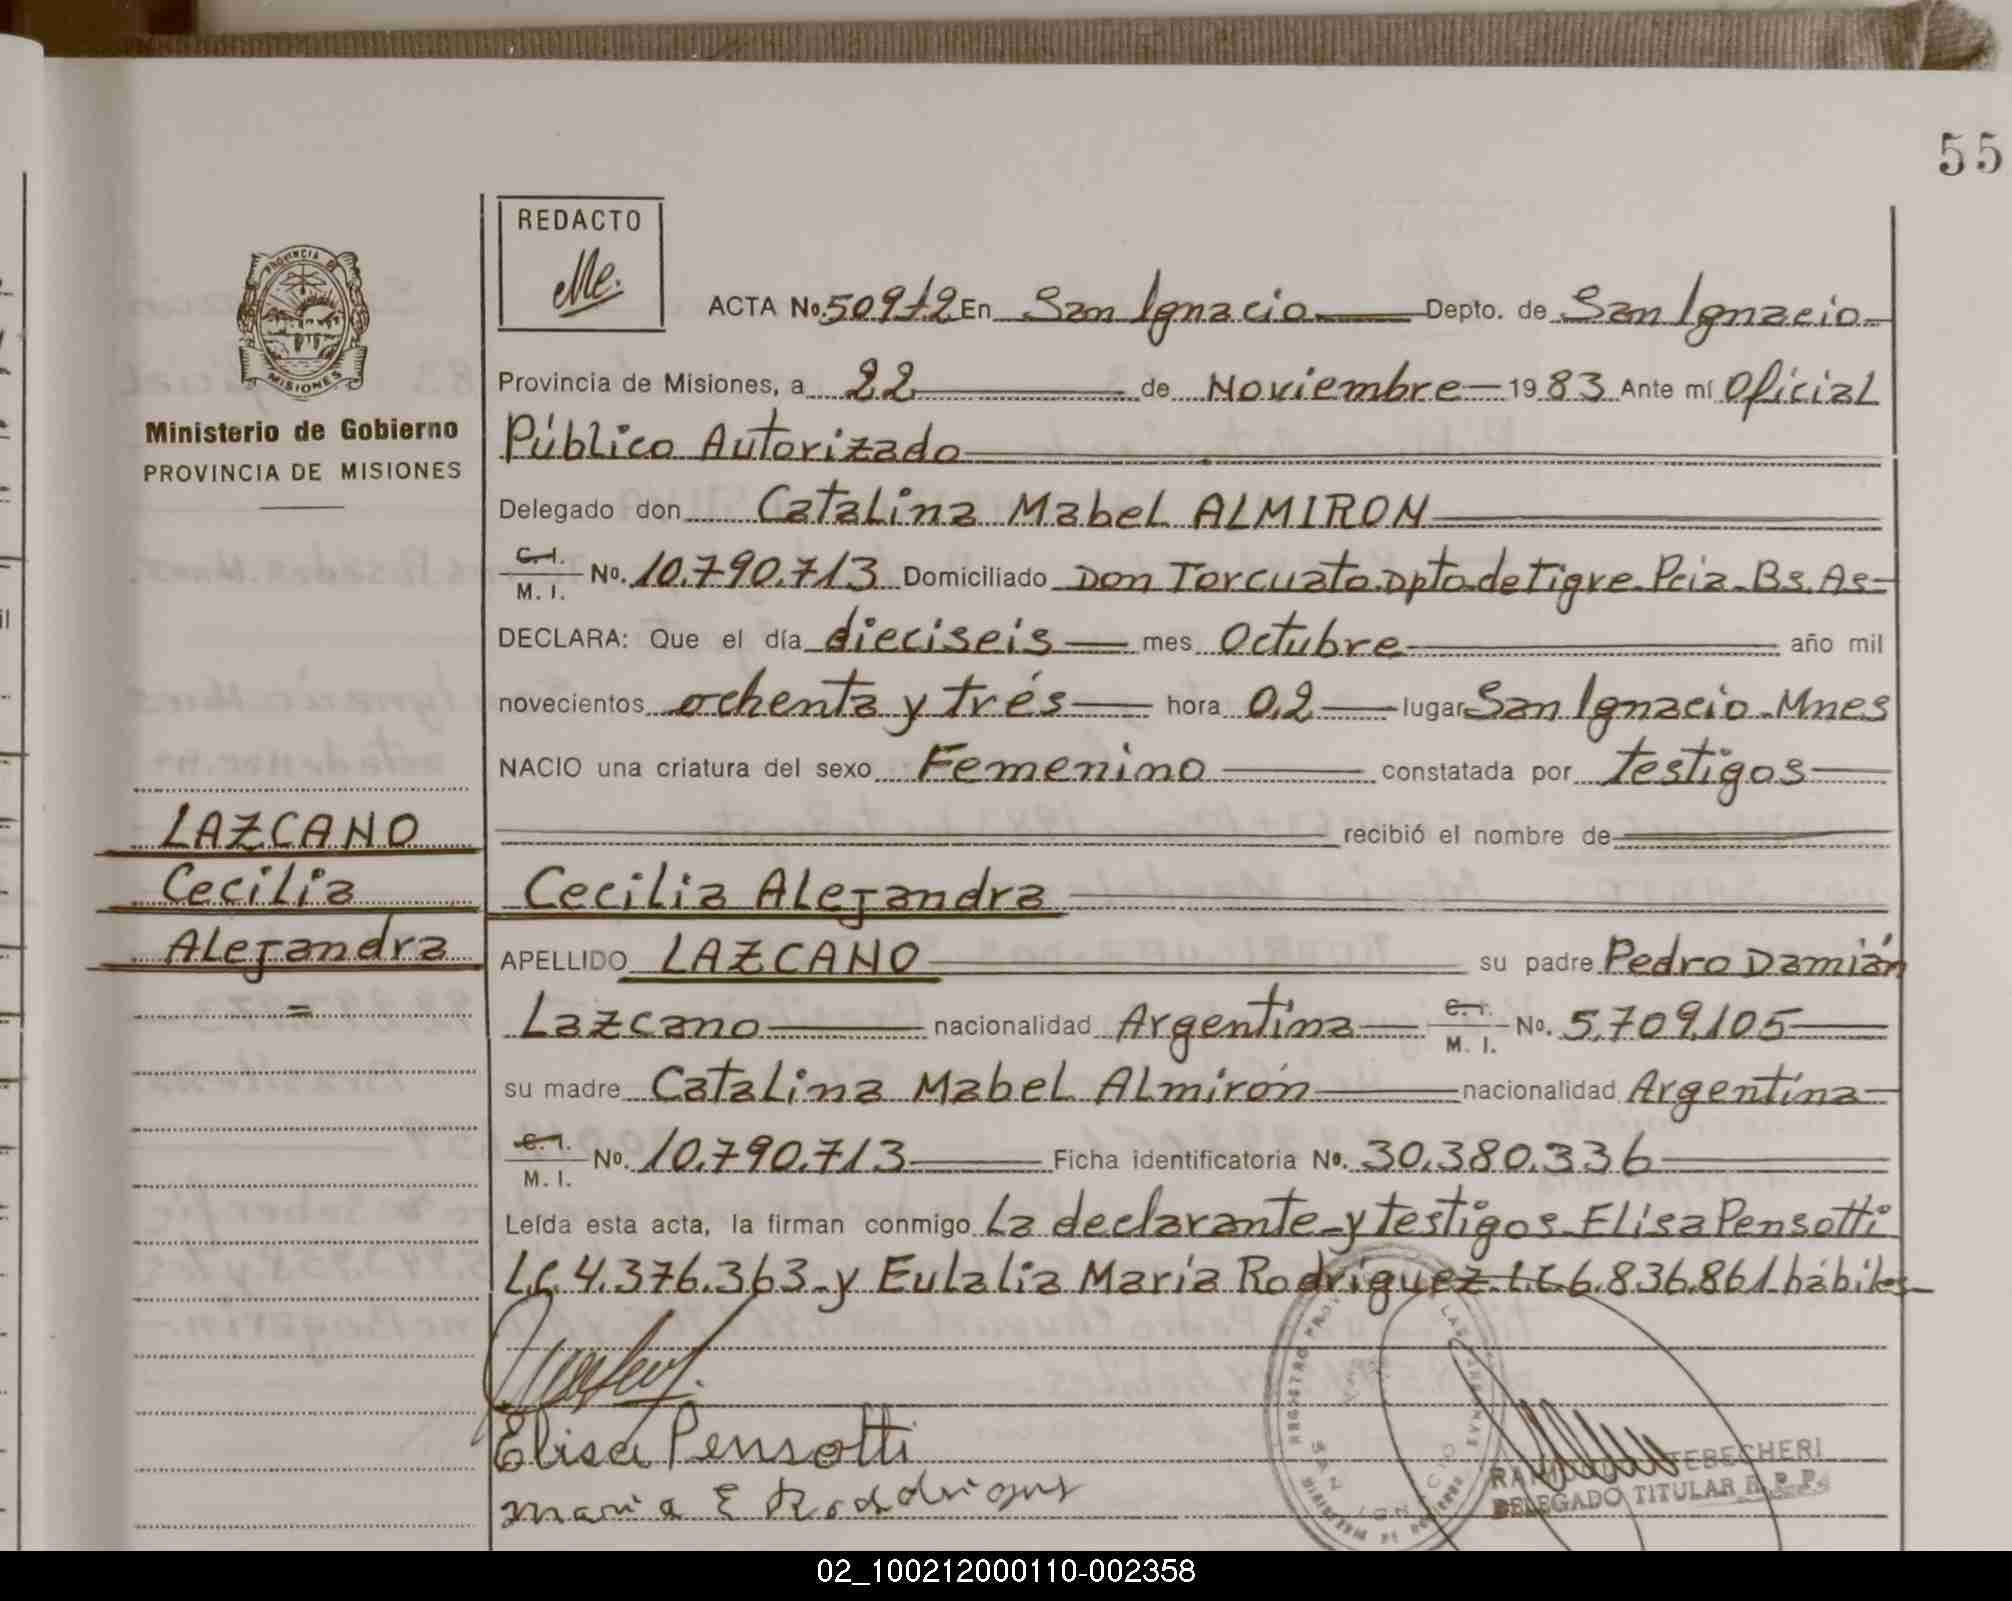 55
REDACTO
Me.
PROVINCIA DE
MISIONES
Ministerio de Gobierno
PROVINCIA DE MISIONES
ACTA No. 50972 En San Ignacio Depto. de San Ignacio
Provincia de Misiones, a 22 de Noviembre 1983 Ante mí Oficial
Público Autorizado
Delegado don Catalina Mabel ALMIRON
C.I. M. I. No. 10.790.713 Domiciliado Don Torcuato Dpto de Tigre Pcia. Bs. As
DECLARA: Que el día dieciseis mes Octubre año mil
novecientos ochenta y trés hora 0,2 lugar San Ignacio Mnes
NACIO una criatura del sexo Femenino constatada por testigos
recibió el nombre de
LAZCANO
Cecilia
Alejandra
=
Cecilia Alejandra
APELLIDO LAZCANO su padre Pedro Damián
Lazcano nacionalidad Argentina C.I. M. I. No. 5.709.105
su madre Catalina Mabel Almirón nacionalidad Argentina
C.I. M. I. No. 10.790.713 Ficha identificatoria No. 30.380.336
Leída esta acta, la firman conmigo la declarante y testigos Elisa Pensotti
LC 4.376.363 y Eulalia María Rodriguez LC 6.836.861 hábiles
Elisa Pensotti
Maria E Rodriguez
TEBECHERI
DELEGADO TITULAR R. P. P.
02_100212000110-002358